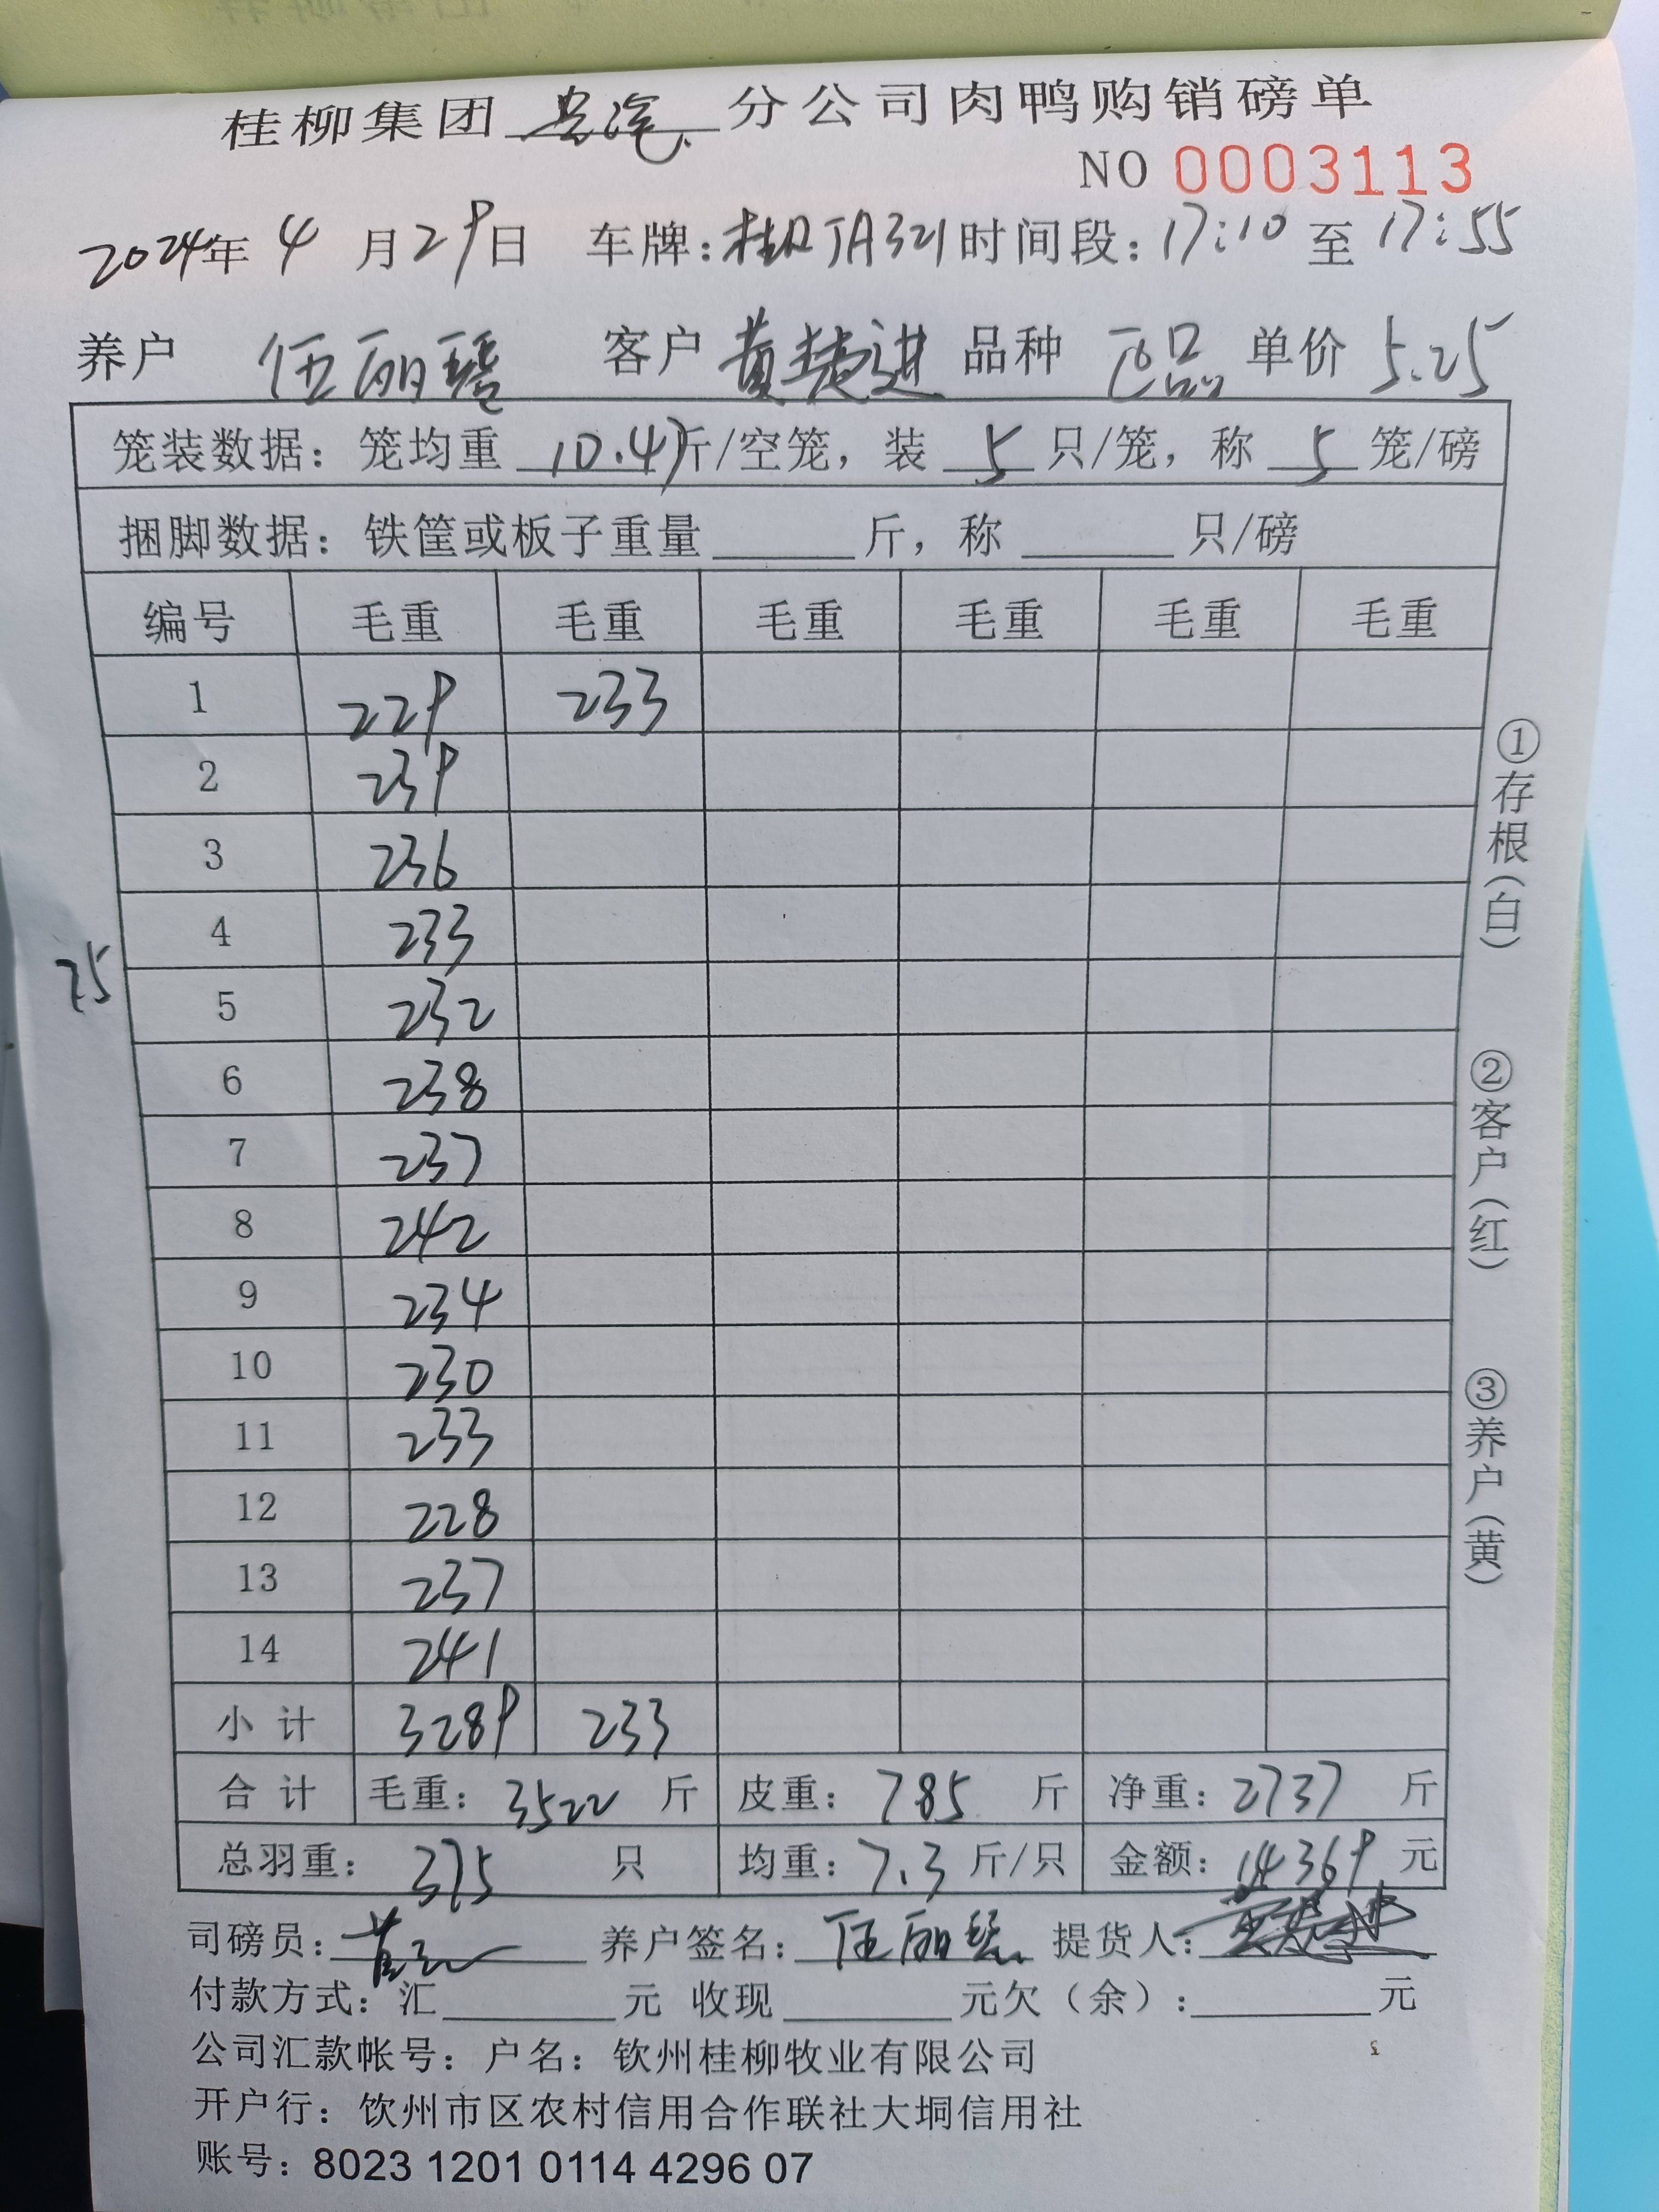 桂柳集团 分公司肉鸭购销磅单
NO 0003113
2024年 4 月 29 日 车牌: 时间段: 17:10 至 17:55
养户 伍丽 客户 黄 进 品种 正品 单价 5.25
笼装数据: 笼均重 10.47 斤/空笼, 装 5 只/笼, 称 5 笼/磅
捆脚数据: 铁筐或板子重量 斤, 称 只/磅
编号 毛重 毛重 毛重 毛重 毛重 毛重
1 229 233
2 239
3 236
4 233
75
5 232
6 238
7 237
8 242
9 234
10 230
11 233
12 228
13 237
14 241
小计 3289 233
合计 毛重: 3522 斤 皮重: 785 斤 净重: 2737 斤
总羽重: 375 只 均重: 7.3 斤/只 金额: 14369 元
司磅员: 养户签名: 伍丽 提货人:
付款方式: 汇 元 收现 元欠(余): 元
公司汇款帐号: 户名: 钦州桂柳牧业有限公司
开户行: 钦州市区农村信用合作联社大垌信用社
账号: 8023 1201 0114 4296 07
①存根(白)
②客户(红)
③养户(黄)